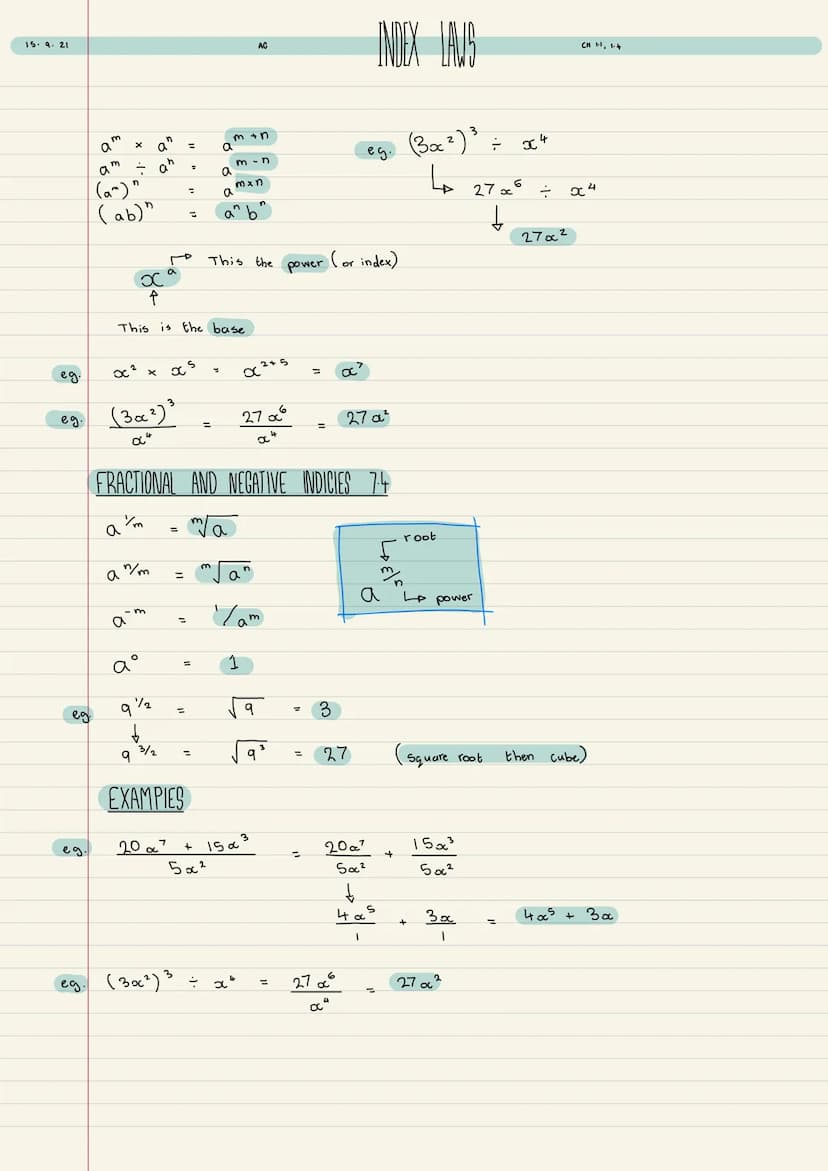 INDEX LAWS
15. 9. 21 AC CH 1.1, 1.4
aᵐ × aⁿ = aᵐ⁺ⁿ
aᵐ ÷ aⁿ = aᵐ⁻ⁿ
(aᵐ)ⁿ = aᵐˣⁿ
(ab)ⁿ = aⁿbⁿ
eg. (3x²)³ ÷ x⁴
↳ 27x⁶ ÷ x⁴
↓
27x²
xᵃ → This the power (or index)
↑
This is the base
eg. x² × x⁵ = x²⁺⁵ = x⁷
eg. (3x²)³/x⁴ = 27x⁶/x⁴ = 27x²
FRACTIONAL AND NEGATIVE INDICIES 7.4
a^1/m = ᵐ√a
a^n/m = ᵐ√aⁿ
a⁻ᵐ = 1/aᵐ
a⁰ = 1
root
a^m/n
↳ power
eg 9^1/2 = √9 = 3
↓
9^3/2 = √9³ = 27 (square root then cube)
EXAMPLES
eg. (20x⁷ + 15x³)/5x² = 20x⁷/5x² + 15x³/5x²
↓
4x⁵/1 + 3x/1 = 4x⁵ + 3x
eg. (3x²)³ ÷ x⁶ = 27x⁶/x⁴ = 27x²